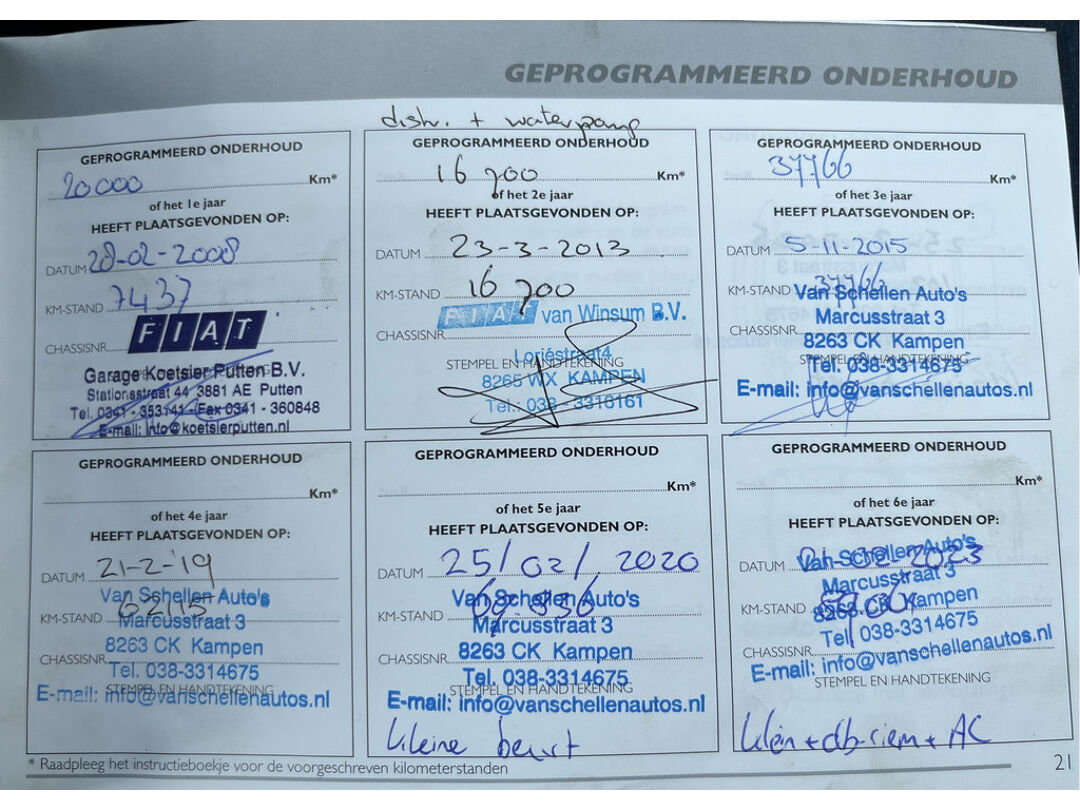 GEPROGRAMMEERD ONDERHOUD
distr. + waterpomp
GEPROGRAMMEERD ONDERHOUD
20000 Km*
of het 1e jaar
HEEFT PLAATSGEVONDEN OP:
DATUM 28-02-2008
KM-STAND 7437
CHASSISNR. FIAT
Garage Koetsier Putten B.V.
Stationsstraat 44 3881 AE Putten
Tel. 0341 - 353141 - Fax 0341 - 360848
E-mail: info@koetsierputten.nl
GEPROGRAMMEERD ONDERHOUD
16 700 Km*
of het 2e jaar
HEEFT PLAATSGEVONDEN OP:
DATUM 23-3-2013
KM-STAND 16 700
FIAT van Winsum B.V.
CHASSISNR.
Loriéstraat 4
STEMPEL EN HANDTEKENING
8265 WX KAMPEN
Tel.: 038 - 3316161
GEPROGRAMMEERD ONDERHOUD
37766
Km*
of het 3e jaar
HEEFT PLAATSGEVONDEN OP:
DATUM 5-11-2015
37766
KM-STAND Van Schellen Auto's
Marcusstraat 3
CHASSISNR.
8263 CK Kampen
STEMPEL EN HANDTEKENING
Tel. 038-3314675
E-mail: info@vanschellenautos.nl
GEPROGRAMMEERD ONDERHOUD
Km*
of het 4e jaar
HEEFT PLAATSGEVONDEN OP:
DATUM 21-2-'19
Van Schellen Auto's
KM-STAND 62115
Marcusstraat 3
8263 CK Kampen
CHASSISNR.
Tel. 038-3314675
STEMPEL EN HANDTEKENING
E-mail: info@vanschellenautos.nl
GEPROGRAMMEERD ONDERHOUD
Km*
of het 5e jaar
HEEFT PLAATSGEVONDEN OP:
DATUM 25/02/2020
Van Schellen Auto's
KM-STAND
Marcusstraat 3
8263 CK Kampen
CHASSISNR.
Tel. 038-3314675
STEMPEL EN HANDTEKENING
E-mail: info@vanschellenautos.nl
kleine beurt
GEPROGRAMMEERD ONDERHOUD
Km*
of het 6e jaar
HEEFT PLAATSGEVONDEN OP:
Van Schellen Auto's
DATUM 2023
Marcusstraat 3
KM-STAND
8263 CK Kampen
Tel. 038-3314675
CHASSISNR.
E-mail: info@vanschellenautos.nl
STEMPEL EN HANDTEKENING
klein + db-riem + AC
* Raadpleeg het instructieboekje voor de voorgeschreven kilometerstanden
21